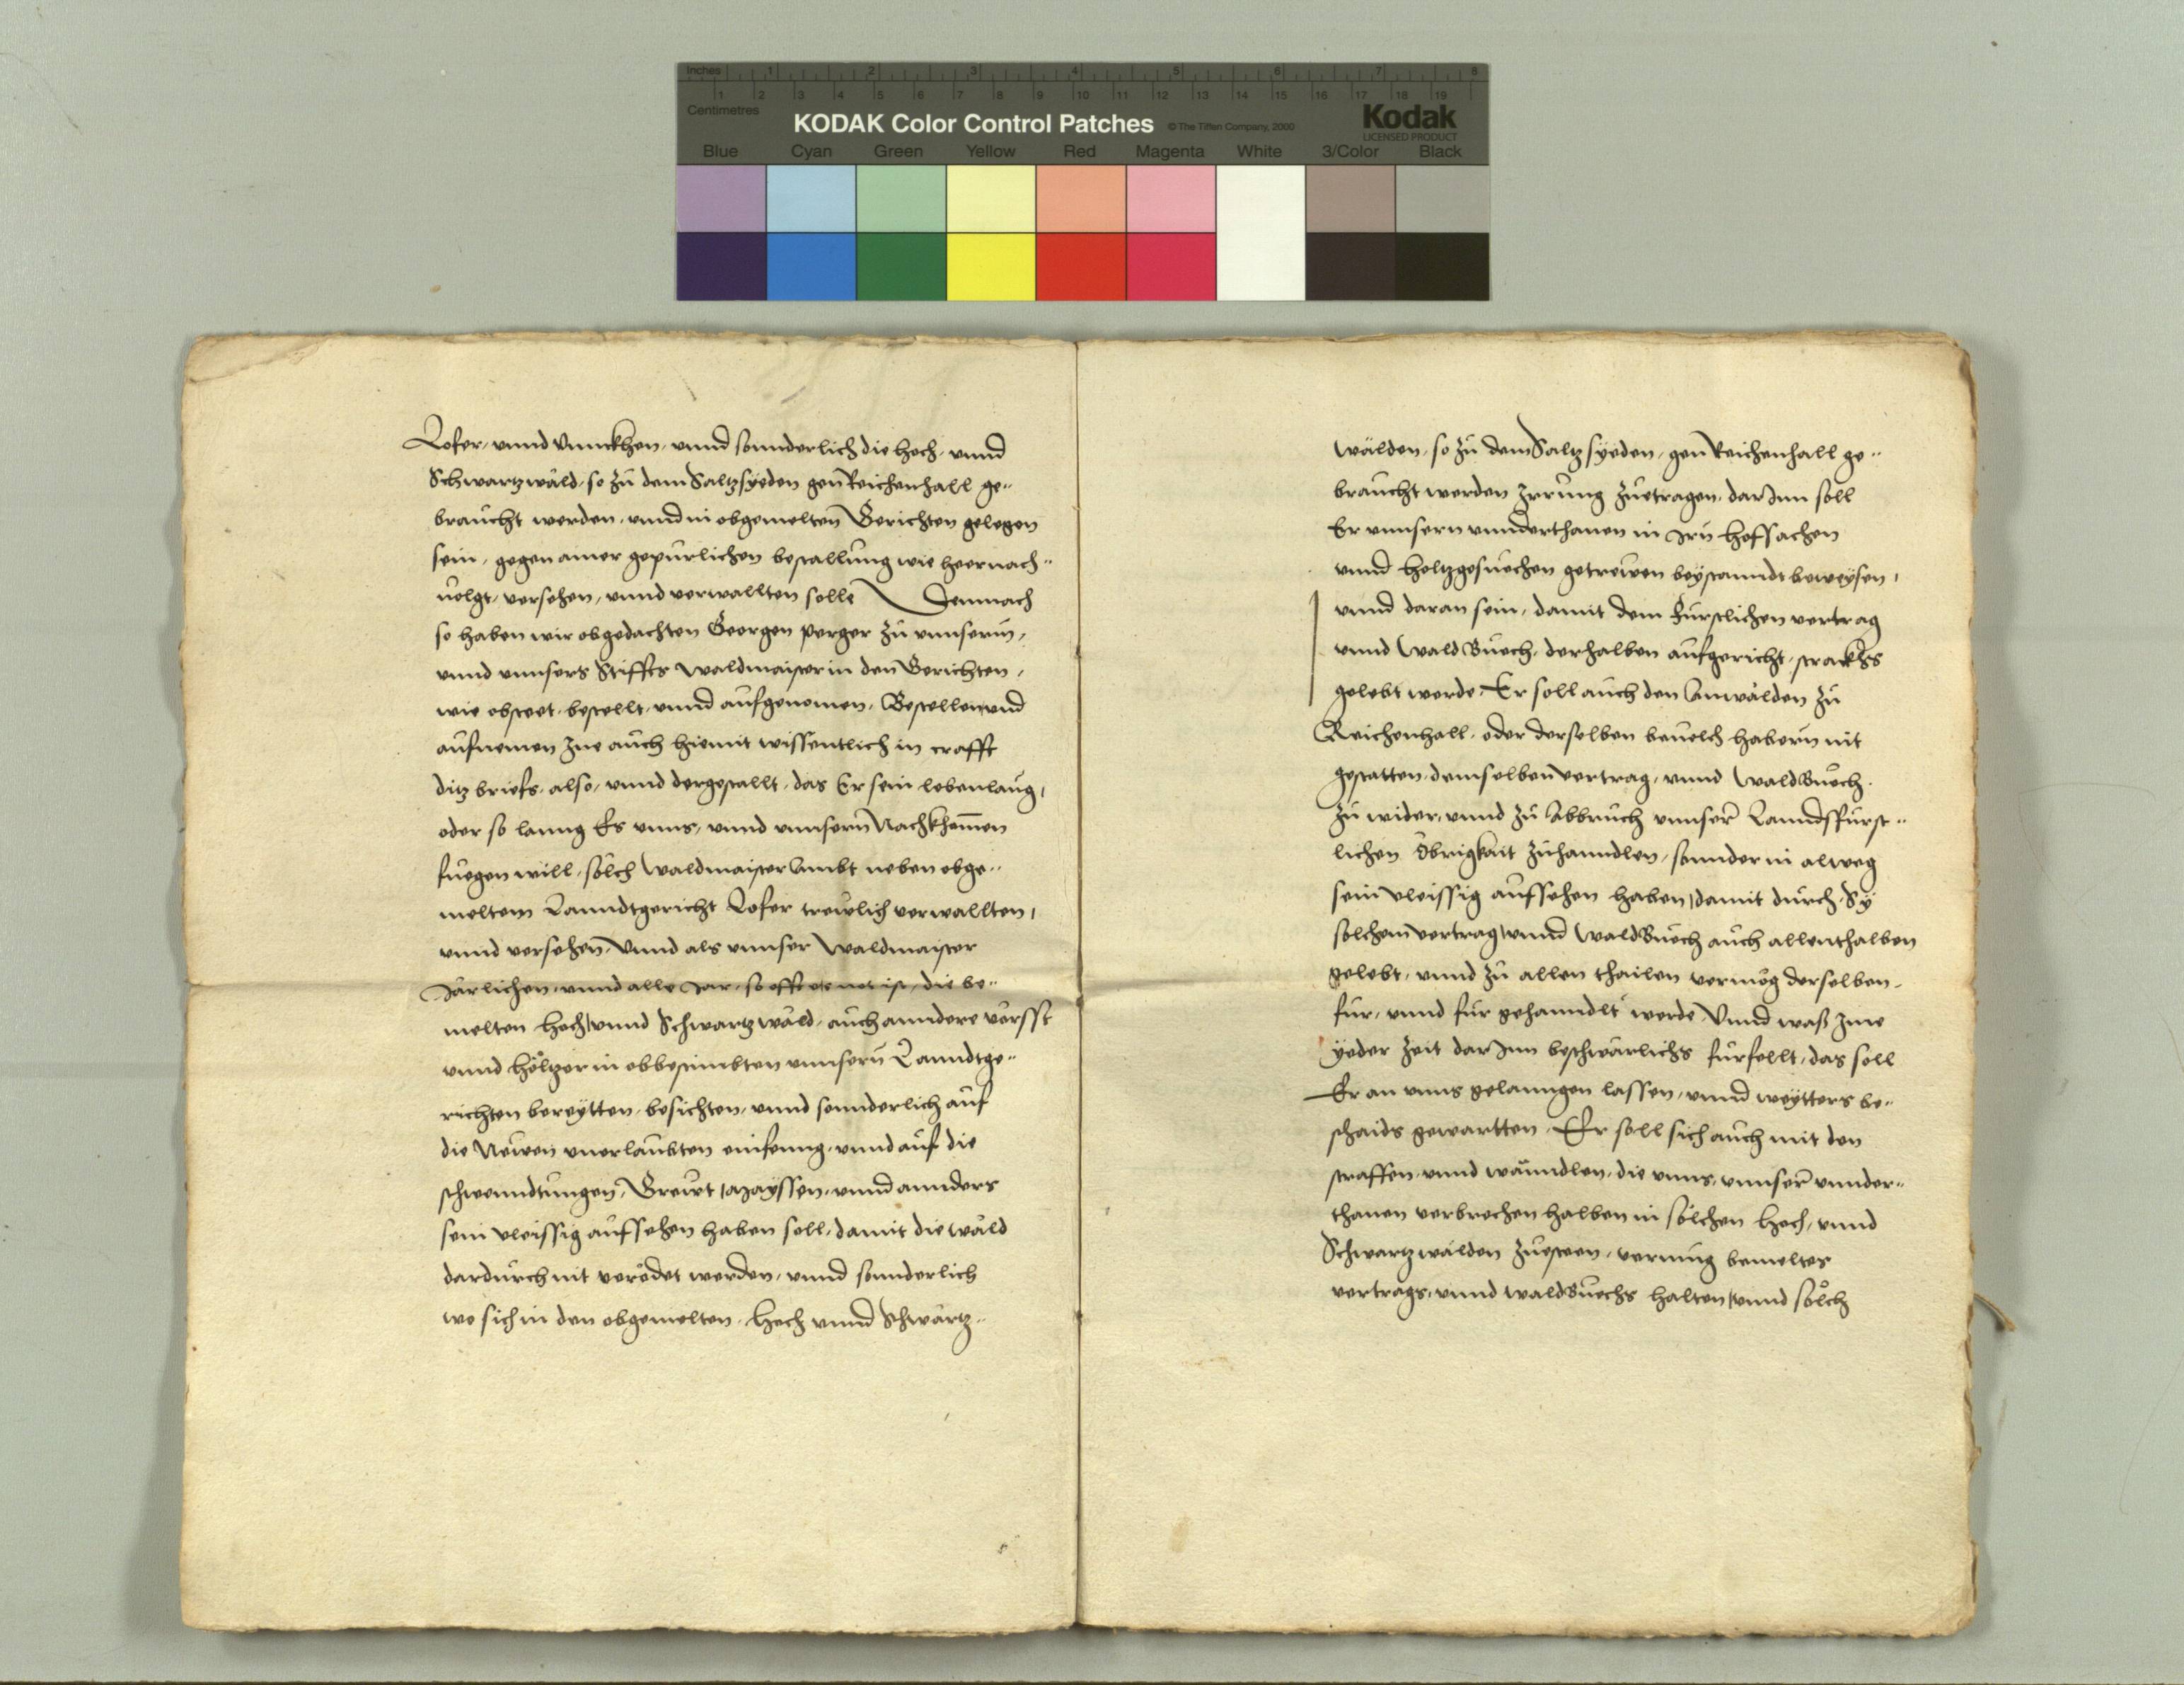 Inches 1 2 3 4 5 6 7 8
1 2 3 4 5 6 7 8 9 10 11 12 13 14 15 16 17 18 19
Centimetres
KODAK Color Control Patches © The Tiffen Company, 2000 Kodak
LICENSED PRODUCT
Blue Cyan Green Yellow Red Magenta White 3/Color Black
Lofer, vnnd Vnnckhen, vnnd sonnderlich die hoch, vnnd
Schwartzwäld, so zu dem Saltzsyeden gen Reichenhall ge-
braucht werden, vnnd in obgemelten Gerichten gelegen
sein, gegen ainer gepürlichen bestallung wie heernach-
uolgt, versehen, vnnd verwallten solle Demnach
so haben wir obgedachten Georgen perger zu vnnserm,
vnnd vnnsers Stiffts Waldmaister in den Gerichten,
wie obsteet, bestellt, vnnd aufgenomen, Bestellen vnd
aufnemen Jne auch hiemit wissentlich in crafft
ditz briefs, also, vnnd dergestallt, das Er sein lebenlang,
oder so lanng Es vnns, vnnd vnnsern Nachkhomen
fuegen will, solch Waldmaister Ambt neben obge-
meltem Lanndtgericht Lofer trewlich verwallten,
vnnd versehen, Vnnd als vnnser Waldmaister
Järlichen, vnnd alle Jar, so offt es not ist, die be-
melten Hoch, vnnd Schwartzwäld, auch anndere vörsst
vnnd höltzer in obbestimbten vnnsern Lanndtge-
richten bereytten, besichten, vnnd sonnderlich auf
die Newen vnerlaubten einfenng, vnnd auf die
schwenndtungen, Greut, Mayssen, vnnd annders
sein vleissig aufsehen haben soll, damit die wäld
dardurch nit verödet werden, vnnd sonnderlich
wo sich in den obgemelten, Hoch vnnd Schwartz-
wälden, so zu dem Saltzsyeden, gen Reichenhall ge-
braucht werden Jrrung zuetragen, darJnn soll
Er vnnsern vnnderthanen in Jrn
vnnd holtzgesuechen getrewen beystanndt beweysen,
vnnd daran sein, damit dem Fürstlichen vertrag
vnnd WaldBuech, derhalben aufgericht, strackhs
gelebt werde, Er soll auch den Anwälden zu
Reichenhall, oder derselben beuelch habern nit
gestatten, demselben vertrag, vnnd WaldBuech,
zu wider, vnnd zu Abbruch vnnser Lanndsfürst-
lichen Obrigkait zuhanndlen, sonnder in alweg
sein vleissig aufsehen haben, damit durch Sy
solchem vertrag, vnnd WaldBuech auch allenthalben
gelebt, vnnd zu allen thailen vermög derselben,
für, vnnd für gehanndlt werde, Vnnd waß Jme
yeder zeit darJnn beschwärlichs fürfellt, das soll
Er an vnns gelanngen lassen, vnnd weytters be-
schaids gewartten, Er soll sich auch mit den
straffen, vnnd wänndlen, die vnns, vnnser vnnder-
thanen verbrechen halben in solchen Hoch, vnnd
Schwartzwälden zuesteen, vermüg bemeltes
vertrags, vnnd waldBuechs halten, vnnd sölch